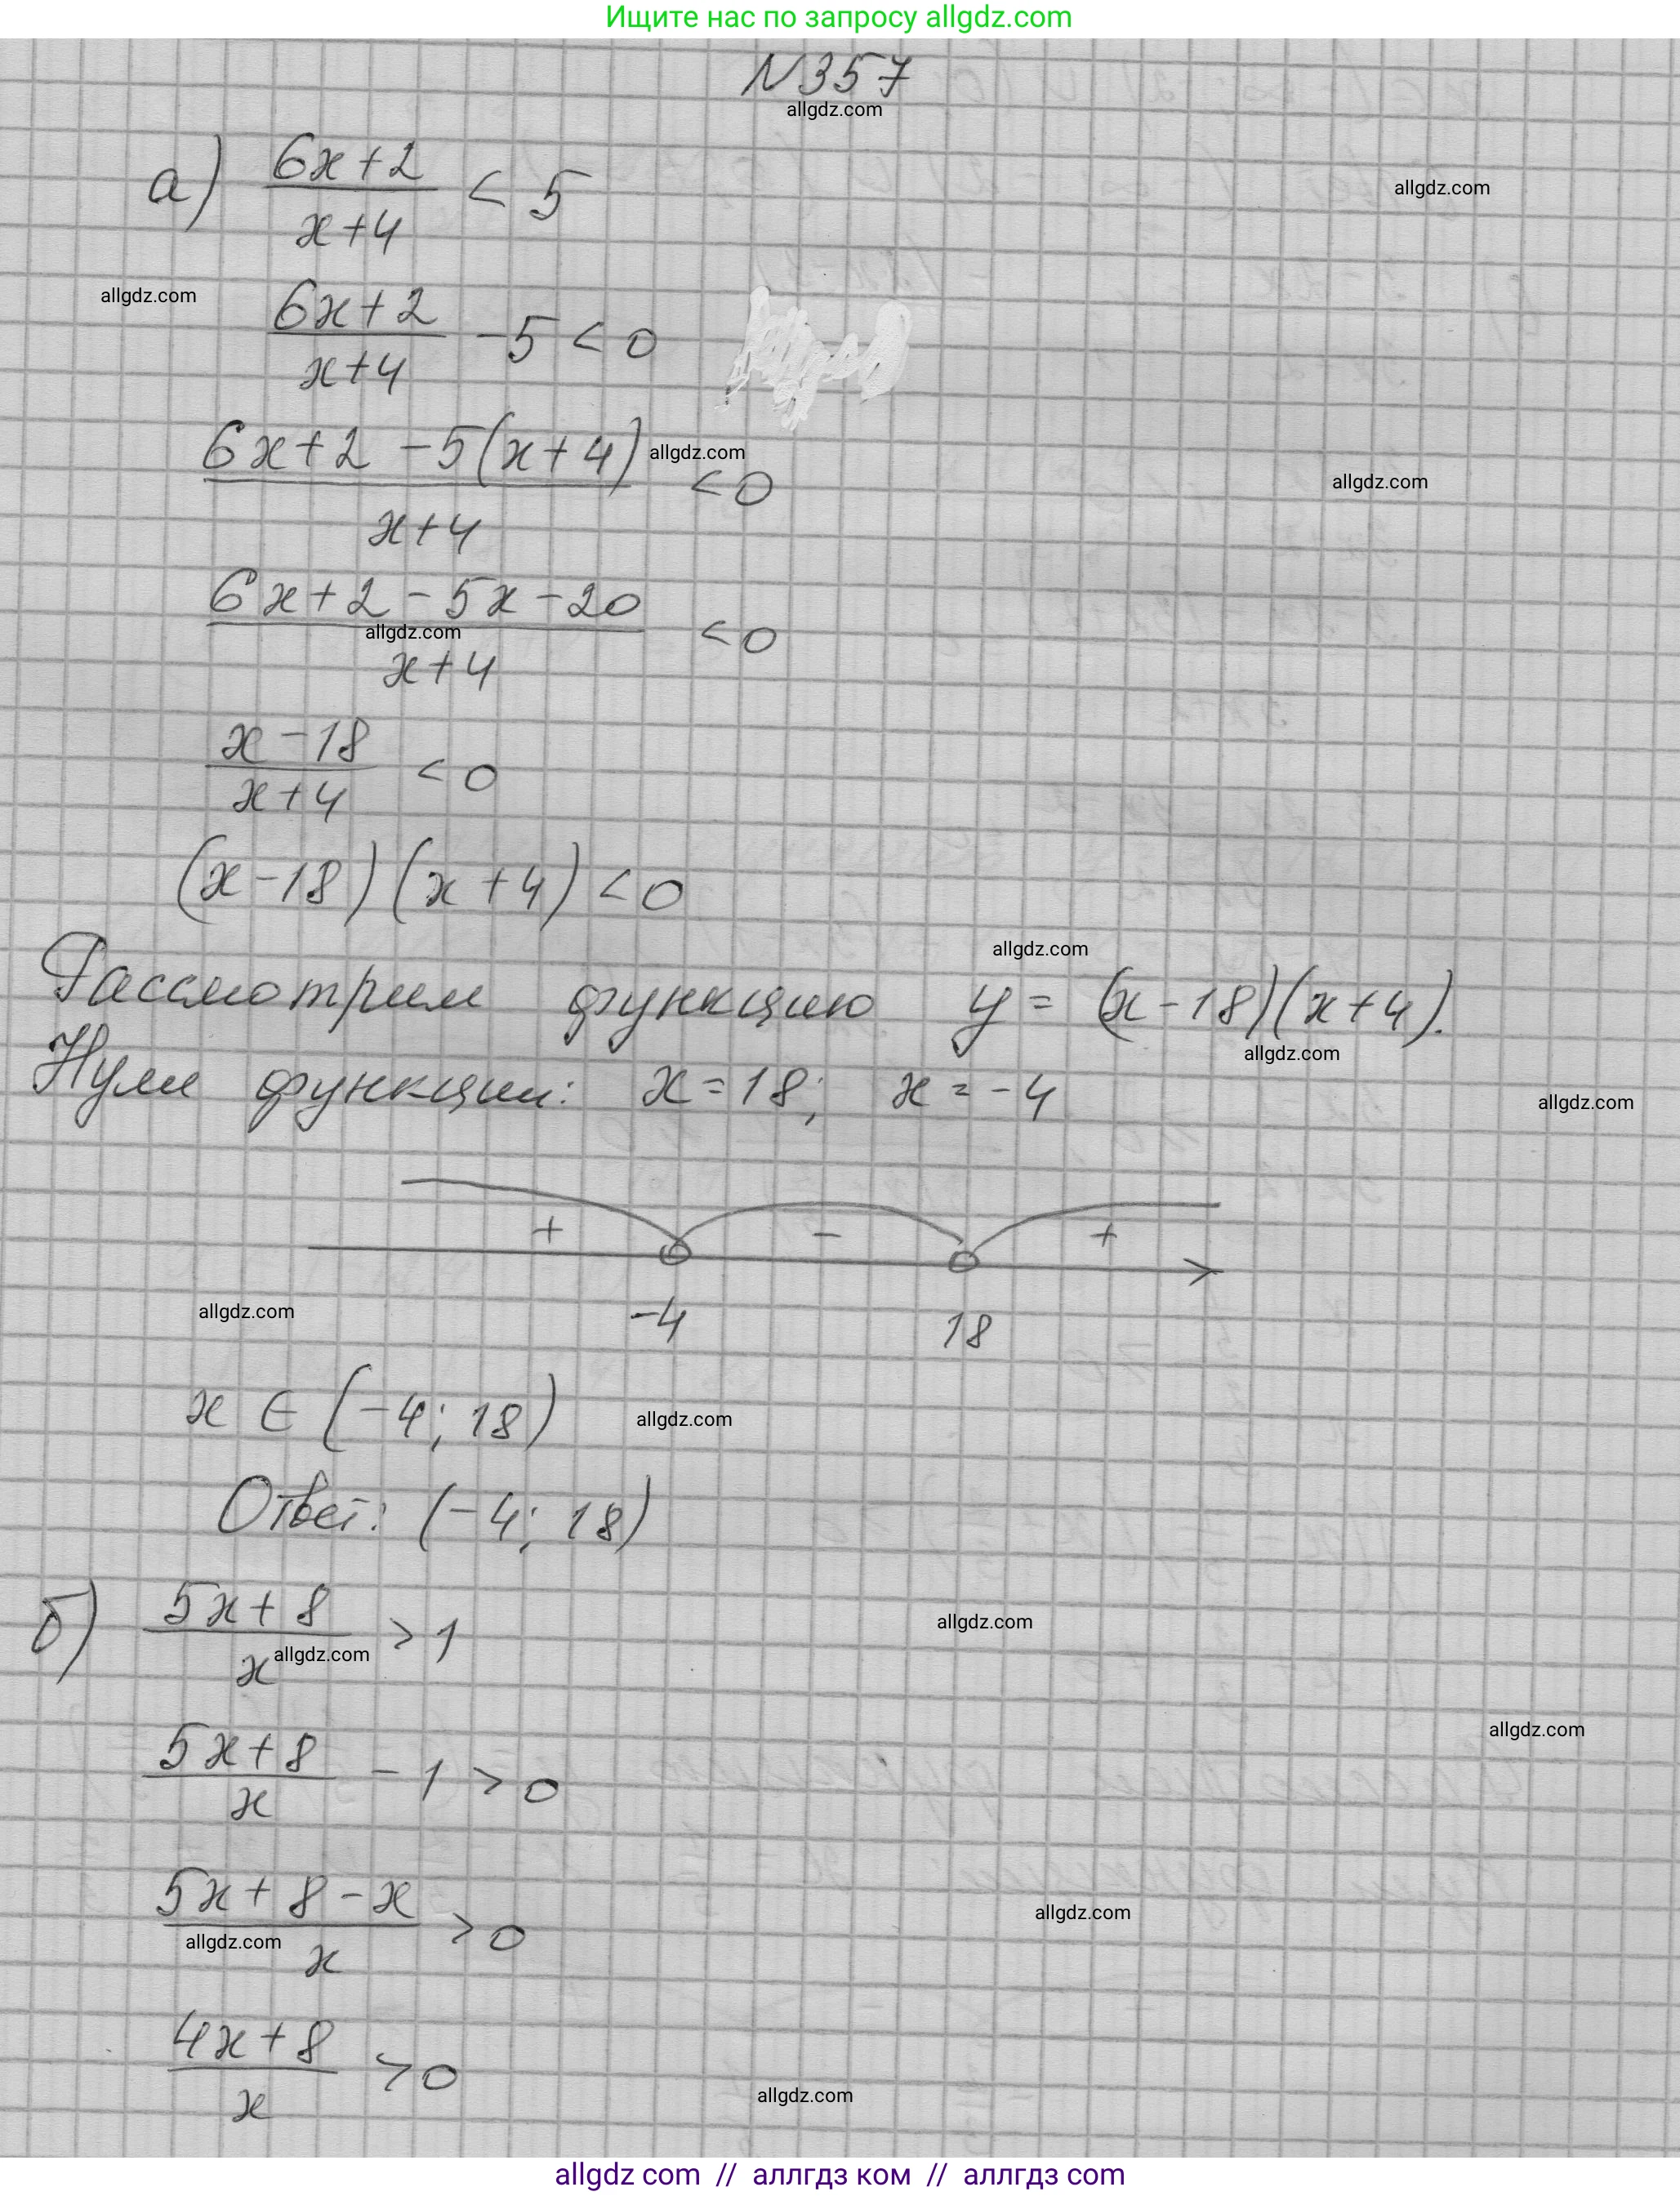 Ищите нас по запросу allgdz.com
N357
allgdz.com
а) (6x+2)/(x+4) < 5
allgdz.com
allgdz.com
(6x+2)/(x+4) - 5 < 0
(6x+2-5(x+4))/(x+4) < 0
allgdz.com
allgdz.com
(6x+2-5x-20)/(x+4) < 0
allgdz.com
(x-18)/(x+4) < 0
(x-18)(x+4) < 0
allgdz.com
Рассмотрим функцию y = (x-18)(x+4).
allgdz.com
Нули функции: x=18; x=-4
allgdz.com
+ - +
allgdz.com
-4 18
x ∈ (-4; 18)
allgdz.com
Ответ: (-4; 18)
б) (5x+8)/x > 1
allgdz.com
allgdz.com
allgdz.com
(5x+8)/x - 1 > 0
(5x+8-x)/x > 0
allgdz.com
allgdz.com
(4x+8)/x > 0
allgdz.com
allgdz com // аллгдз ком // аллгдз com